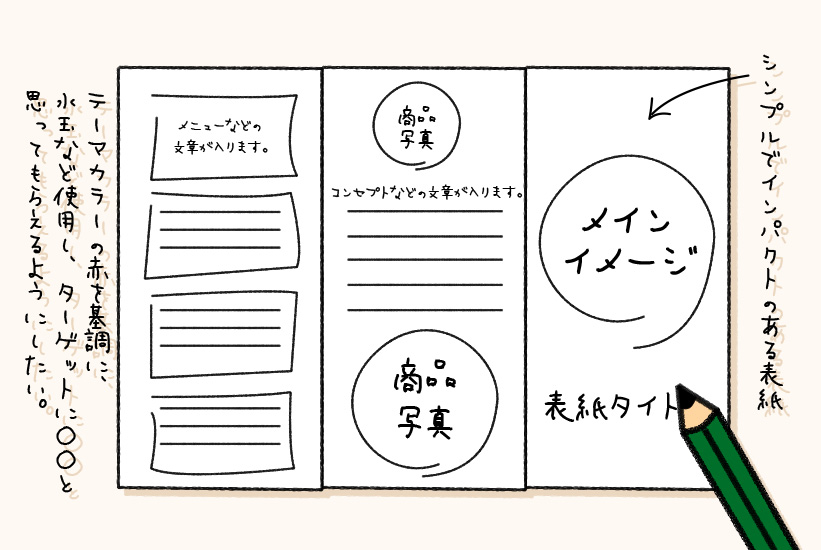 シンプルでインパクトのある表紙
メイン
イメージ
表紙タイト
商品
写真
コンセプトなどの文章が入ります。
商品
写真
メニューなどの
文章が入ります。
テーマカラーの赤を基調に、
水玉など使用し、ターゲットに〇〇と
思ってもらえるようにしたい。